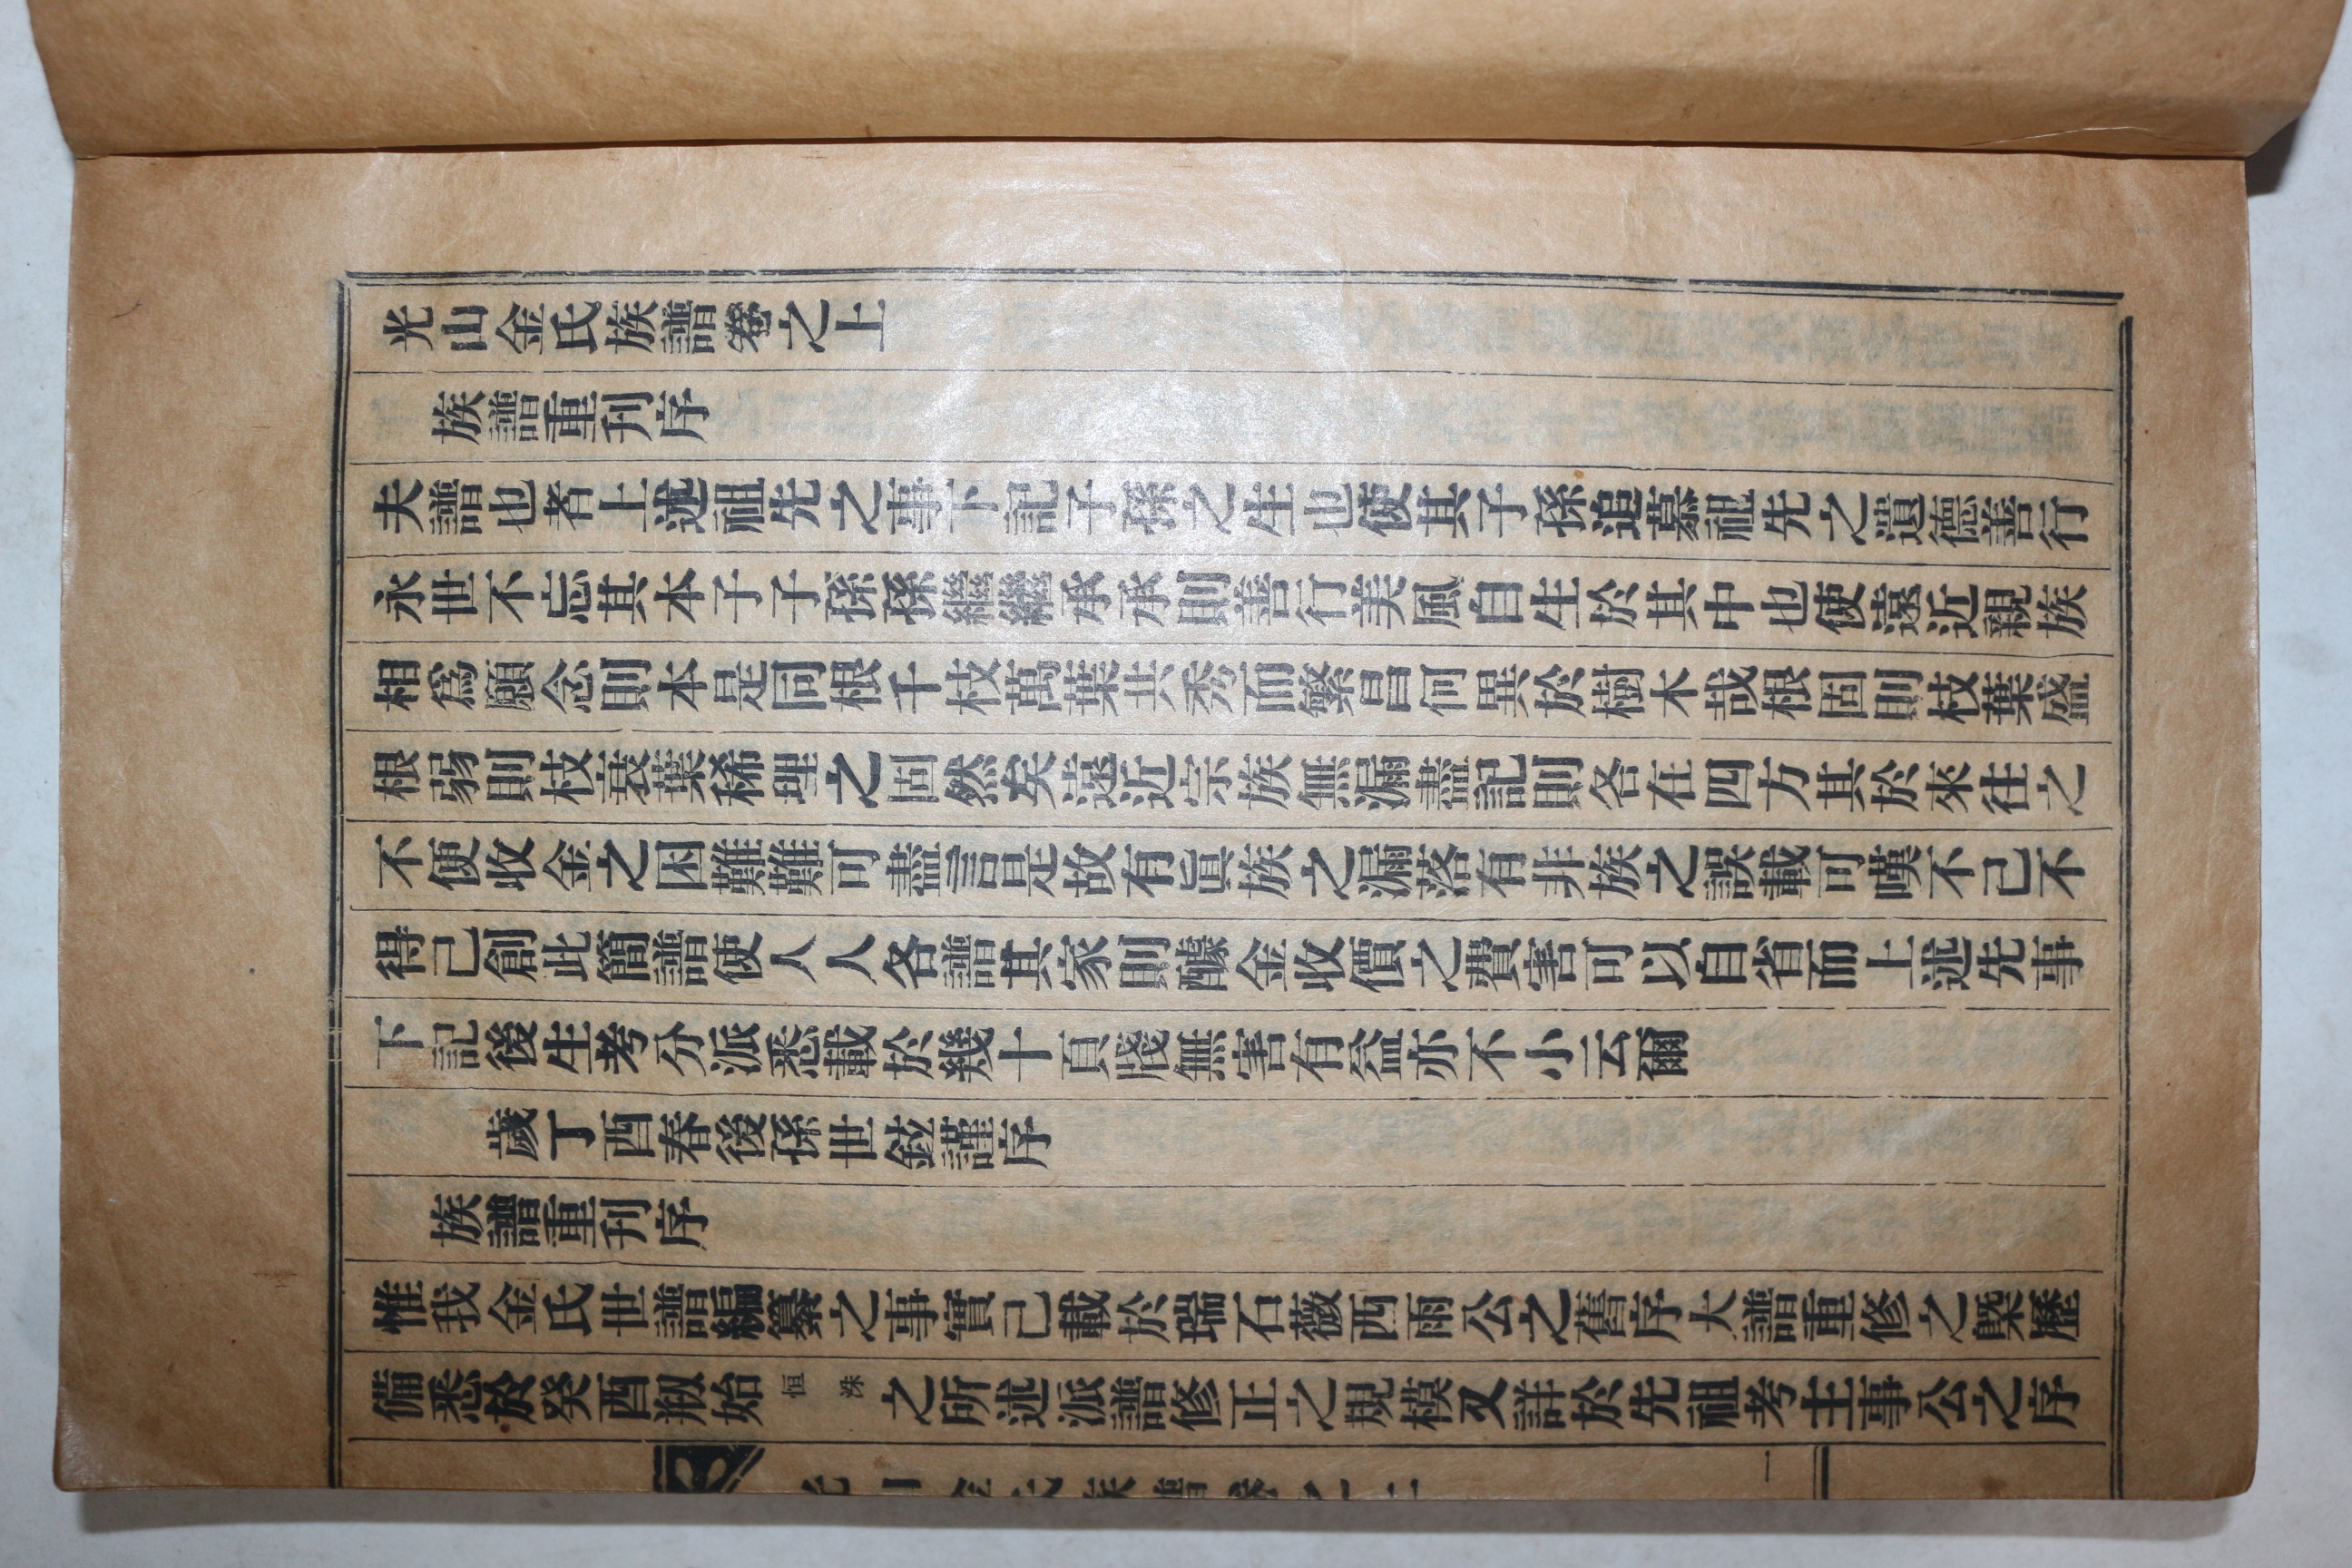 光山金氏族譜卷之上
族譜重刊序
夫譜也者上述祖先之事下記子孫之生也使其子孫追慕祖先之遺德善行
永世不忘其本子子孫孫繼繼承承則善行美風自生於其中也使遠近親族
相爲願念則本是同根千枝萬葉共秀而繁昌何異於樹木哉根固則枝葉盛
根弱則枝衰葉稀理之固然矣遠近宗族無漏盡記則各在四方其於來往之
不便收金之困難難可盡言是故有眞族之漏落有非族之誤載可嘆不已不
得已創此簡譜使人人各譜其家則醵金收價之費害可以自省而上述先事
下記後生考分派悉載於幾十頁牋無害有益亦不小云爾
歲丁酉春後孫世鉉謹序
族譜重刊序
惟我金氏世譜編纂之事實已載於瑞石薇西雨公之舊序大譜重修之槩歷
備悉於癸酉刱始恒洙之所述派譜修正之規模又詳於先祖考主事公之序
一